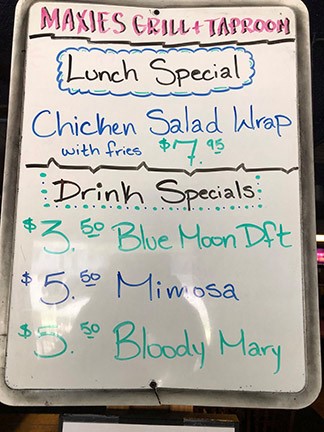 MAXIES GRILL + TAPROOM
Lunch Special
Chicken Salad Wrap
with fries $7.95
Drink Specials
$3.50 Blue Moon Dft
$5.50 Mimosa
$5.50 Bloody Mary